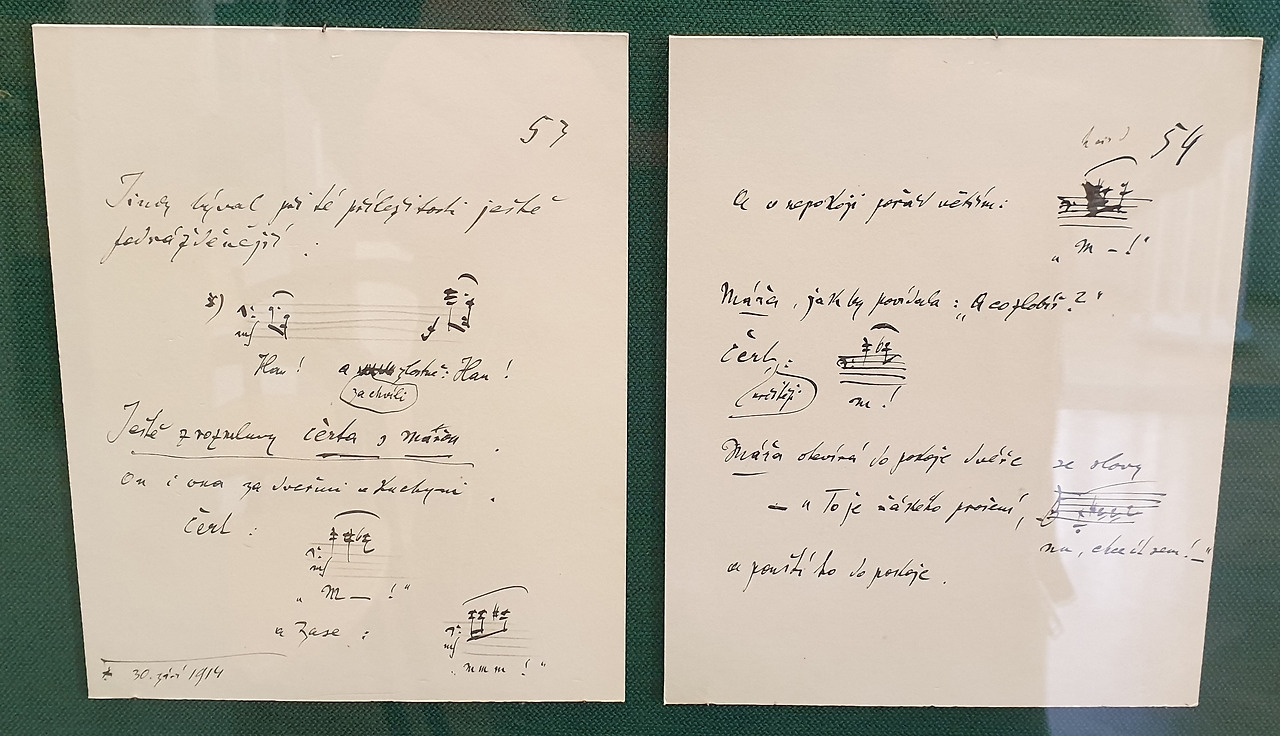 53
Jindy býval při té příležitosti ještě
podrážděnější.
*)
Hau! a zlostně: Hau!
za chvíli
Ještě z rozmluvy čerta s Mářou.
On i ona za dveřmi v kuchyni.
Čert:
„M — !“
a zase:
„mmm!“
* 30. září 1914
54
A v nepokoji pořád větším:
„M — !“
Mářa, jak by povídala: „A co zlobíš?“
Čert:
určitěji
m!
Mářa otevírá do pokoje dveře se slovy
— „To je žásného prošení,
nu, chce it sem! —“
a pouští ho do pokoje.